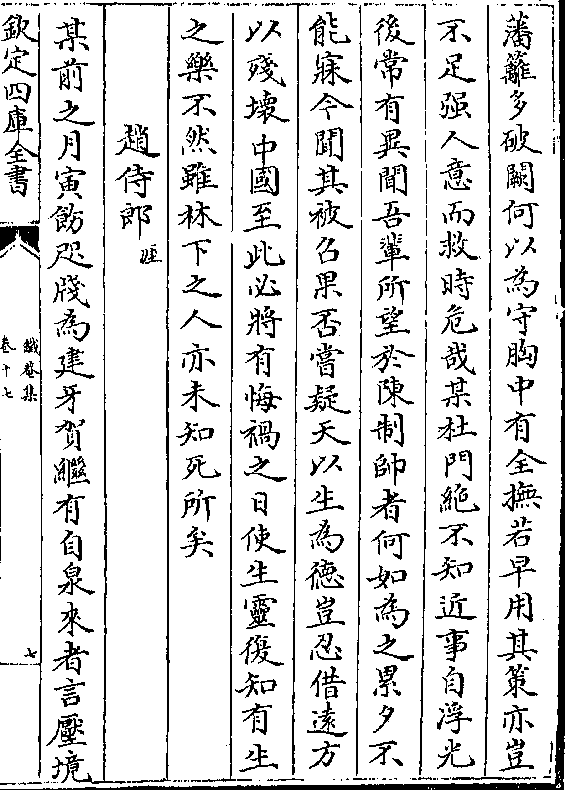 藩籬多破闕何以為守胸中有全撫若早用其策亦豈
不足强人意而救時危哉某杜門絶不知近事自浮光
後常有異聞吾輩所望於陳制帥者何如為之累夕不
能寐今聞其被召果否嘗疑天以生為德豈忍借遠方
以殘壊中國至此必將有悔禍之日使生靈復知有生
之樂不然雖林下之人亦未知死所矣
趙侍郎
某前之月寅飭咫牋為建牙賀繼有自泉來者言壓境
欽定四庫全書
鐵菴集
卷十七
七